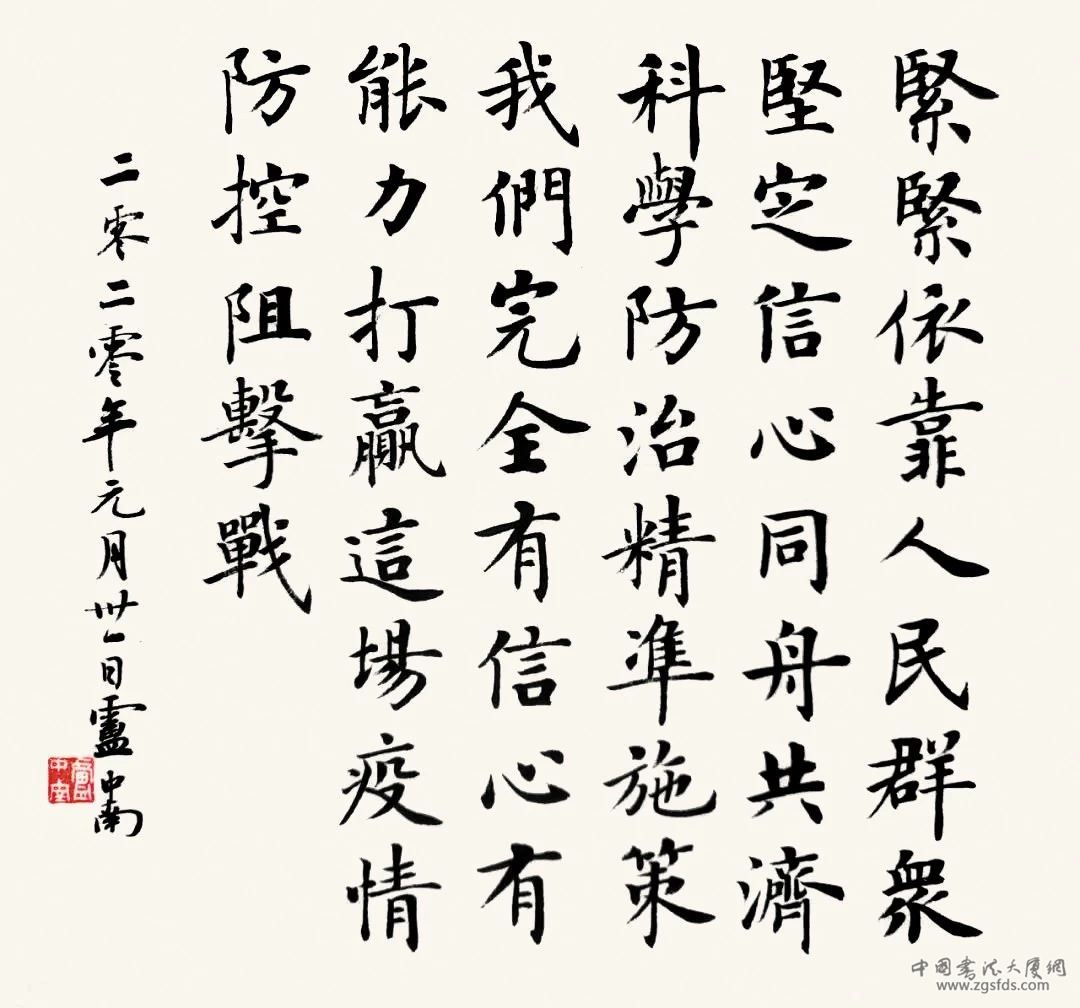 緊緊依靠人民群衆
堅定信心同舟共濟
科學防治精準施策
我們完全有信心有
能力打贏這場疫情
防控阻擊戰
二零二零年元月卅一日盧中南
盧中南
中国书法大厦網
www.zgsfds.com